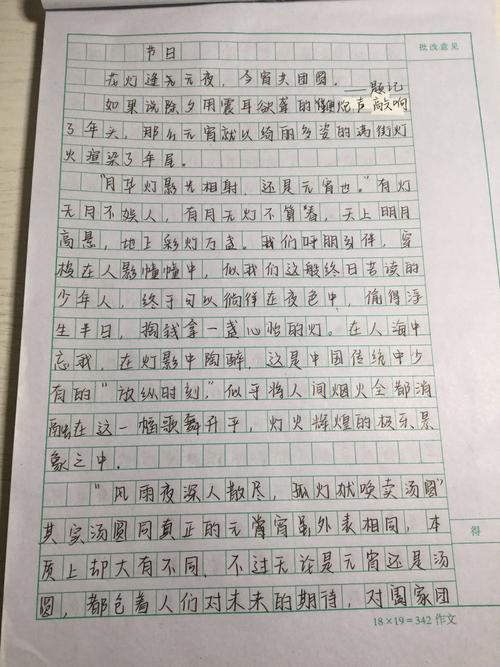 批改意见
节日
花灯逢元夜，今宵共团圆。
——题记
如果说除夕用震耳欲聋的爆炮声敲响
了年头，那么元宵就以绮丽多姿的满街灯
火渲染了年尾。
“月华灯影光相射，还是元宵也。”有灯
无月不娱人，有月无灯不算春，天上明月
高悬，地上彩灯万盏。我们呼朋引伴，穿
梭在人影幢幢中，似我们这般终日苦读的
少年人，终于可以徜徉在夜色中，偷得浮
生半日，掏钱拿一盏心怡的灯。在人海中
忘我，在灯影中陶醉，这是中国传统中少
有的“放纵时刻，”似乎将人间烟火全都消
融在这一幅歌舞升平，灯火辉煌的极乐景
象之中。
“风雨夜深人散尽，孤灯犹唤卖汤圆”
其实汤圆同真正的元宵虽外表相同，本
质上却大有不同，不过无论是元宵还是汤
圆，都包着人们对未来的期待，对国家团
得
18×19=342 作文